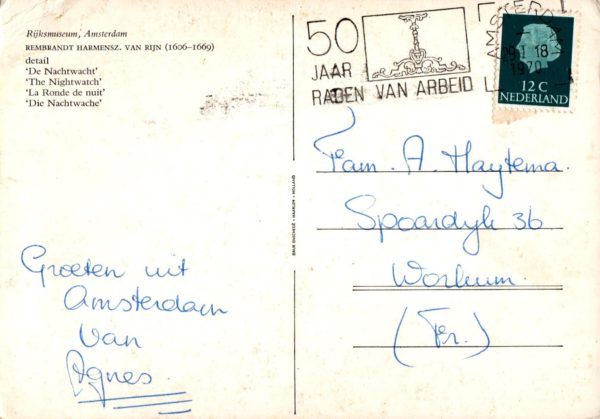 Rijksmuseum, Amsterdam
REMBRANDT HARMENSZ. VAN RIJN (1606–1669)
detail
'De Nachtwacht'
'The Nightwatch'
'La Ronde de nuit'
'Die Nachtwache'
50
JAAR
RADEN VAN ARBEID
AMSTERDAM
29 I 18
1970
12 C
NEDERLAND
Fam. A. Haytema.
Spoordijk 36
Workum.
(Fr.)
Groeten uit
Amsterdam
van
Agnes.